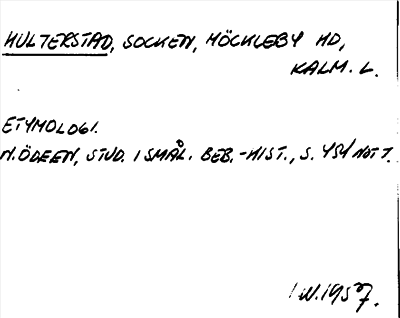 HULTERSTAD, SOCKEN, MÖCKLEBY HD,
KALM. L.
ETYMOLOGI.
N. ÖDEEN, STUD. I SMÅL. BEB.-HIST., S. 451 NOT 7.
1957.